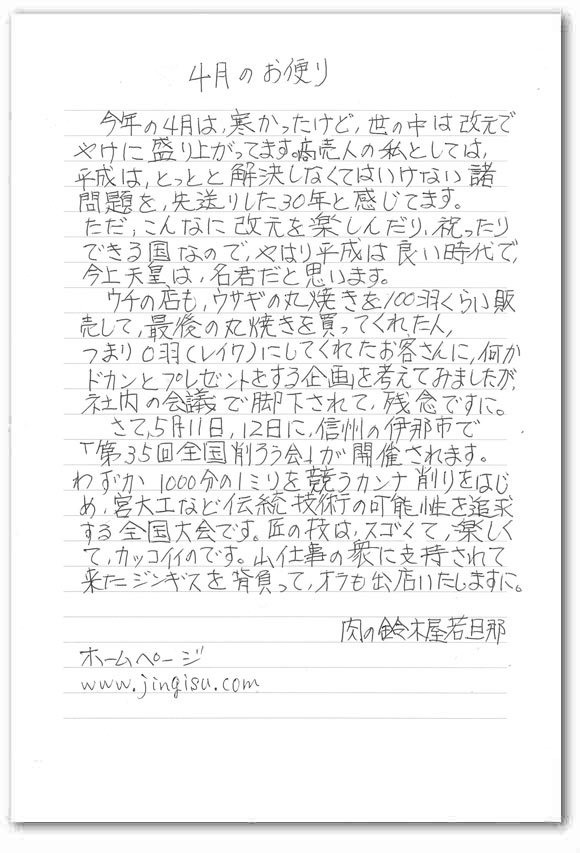 4月のお便り
今年の4月は、寒かったけど、世の中は改元で
やけに盛り上がってます。商売人の私としては、
平成は、とっとと解決しなくてはいけない諸
問題を、先送りした30年と感じてます。
ただ、こんなに改元を楽しんだり、祝ったり
できる国なので、やはり平成は良い時代で、
今上天皇は、名君だと思います。
ウチの店も、ウサギの丸焼きを100羽くらい販
売して、最後の丸焼きを買ってくれた人、
つまり0羽(レイワ)にしてくれたお客さんに、何か
ドカンとプレゼントをする企画を考えてみましたが、
社内の会議で脚下されて、残念ですに。
さて、5月11日、12日に、信州の伊那市で
「第35回全国削ろう会」が開催されます。
わずか1000分の1ミリを競うカンナ削りをはじ
め、宮大工など伝統技術の可能性を追求
する全国大会です。匠の技は、スゴくて、楽しく
て、カッコイイのです。山仕事の衆に支持されて
来たジンギスを背負って、オラも出店いたしますに。
肉の鈴木屋若旦那
ホームページ
www.jingisu.com